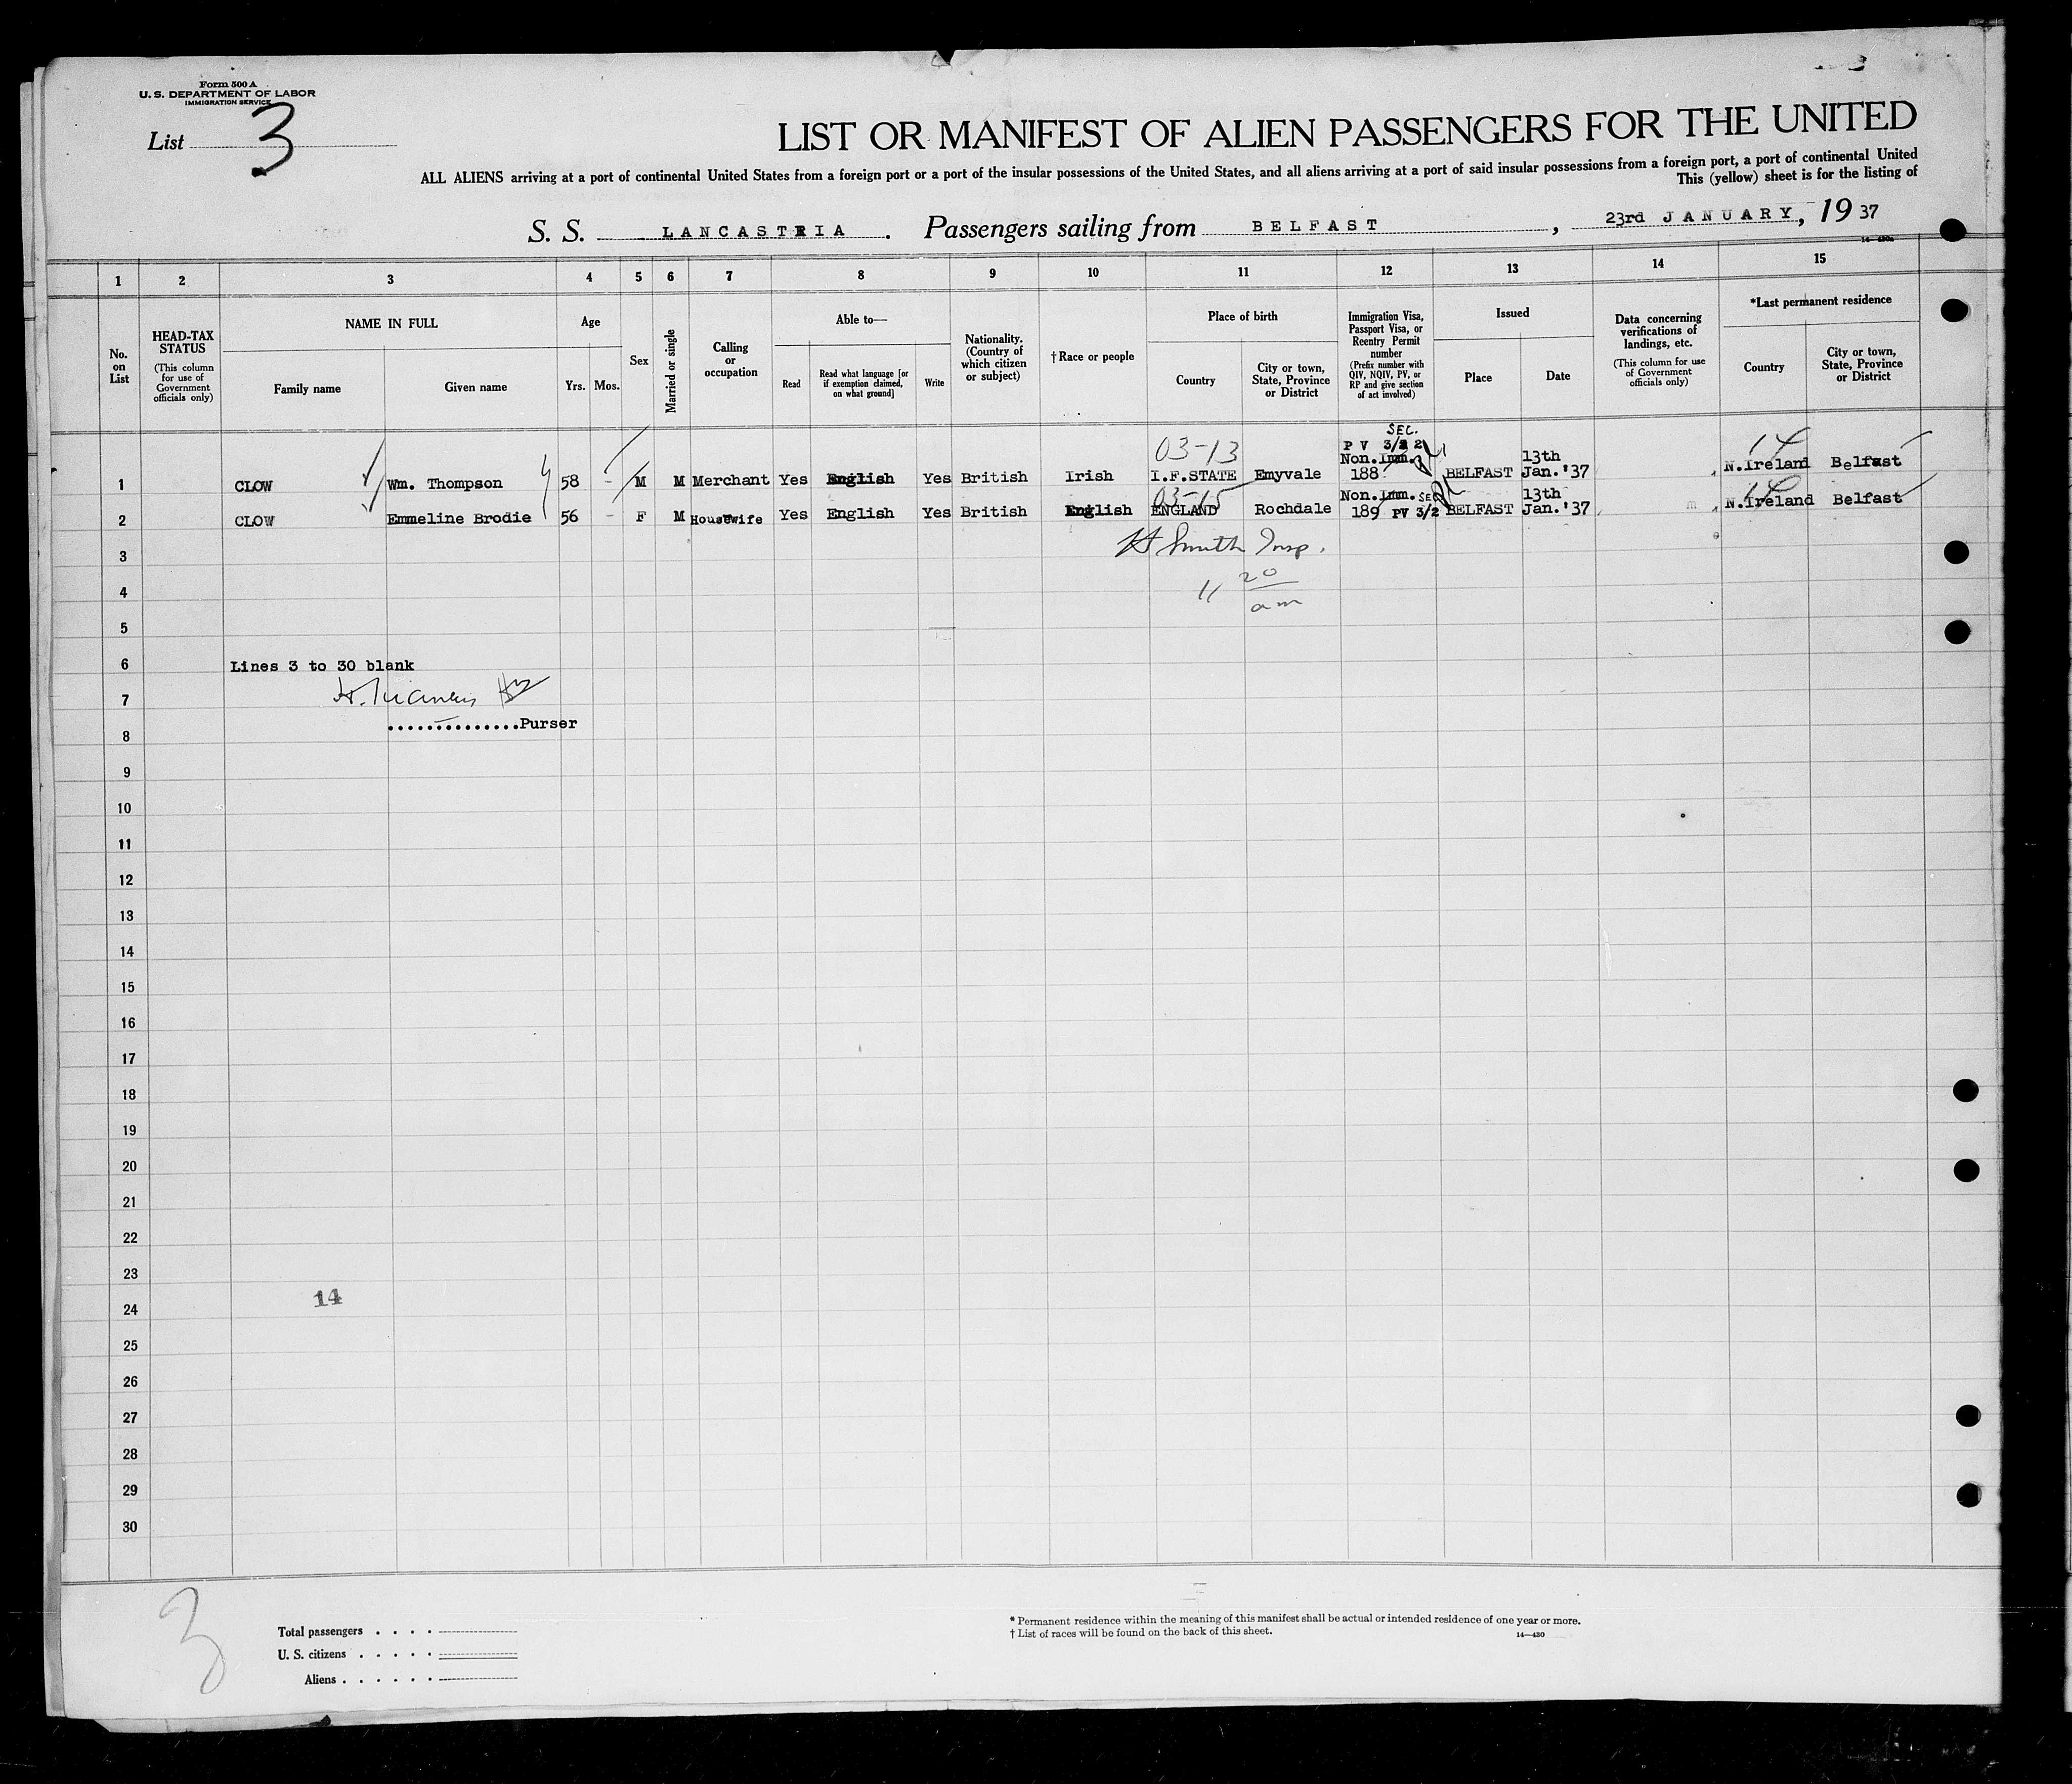 Form 500 A
U. S. DEPARTMENT OF LABOR
IMMIGRATION SERVICE
List 3
LIST OR MANIFEST OF ALIEN PASSENGERS FOR THE UNITED
ALL ALIENS arriving at a port of continental United States from a foreign port or a port of the insular possessions of the United States, and all aliens arriving at a port of said insular possessions from a foreign port, a port of continental United
This (yellow) sheet is for the listing of
S. S. LANCASTRIA. Passengers sailing from BELFAST, 23rd JANUARY, 19 37
1 2 3 4 5 6 7 8 9 10 11 12 13 14 15
No. on List
HEAD-TAX STATUS
(This column for use of Government officials only)
NAME IN FULL
Family name
Given name
Age
Yrs. Mos.
Sex
Married or single
Calling or occupation
Able to—
Read
Read what language [or if exemption claimed, on what ground]
Write
Nationality. (Country of which citizen or subject)
† Race or people
Place of birth
Country
City or town, State, Province or District
Immigration Visa, Passport Visa, or Reentry Permit number
(Prefix number with QIV, NQIV, PV, or RP and give section of act involved)
Issued
Place
Date
Data concerning verifications of landings, etc.
(This column for use of Government officials only)
*Last permanent residence
Country
City or town, State, Province or District
SEC.
03-13 P V 3/2 2 14
Non.Imm. 13th
1 CLOW Wm. Thompson 58 - M M Merchant Yes English Yes British Irish I.F.STATE Emyvale 188 BELFAST Jan.'37 N.Ireland Belfast
03-15 Non.Imm. SEC 13th 14
2 CLOW Emmeline Brodie 56 - F M Housewife Yes English Yes British English ENGLAND Rochdale 189 PV 3/2 BELFAST Jan.'37 N.Ireland Belfast
3
H Smith Insp.
4
11 20 am
5
6 Lines 3 to 30 blank
7
8 ...............Purser
9
10
11
12
13
14
15
16
17
18
19
20
21
22
23
24 14
25
26
27
28
29
30
3
Total passengers . . . .
U. S. citizens . . . . .
Aliens . . . . . .
* Permanent residence within the meaning of this manifest shall be actual or intended residence of one year or more.
† List of races will be found on the back of this sheet.
14—430